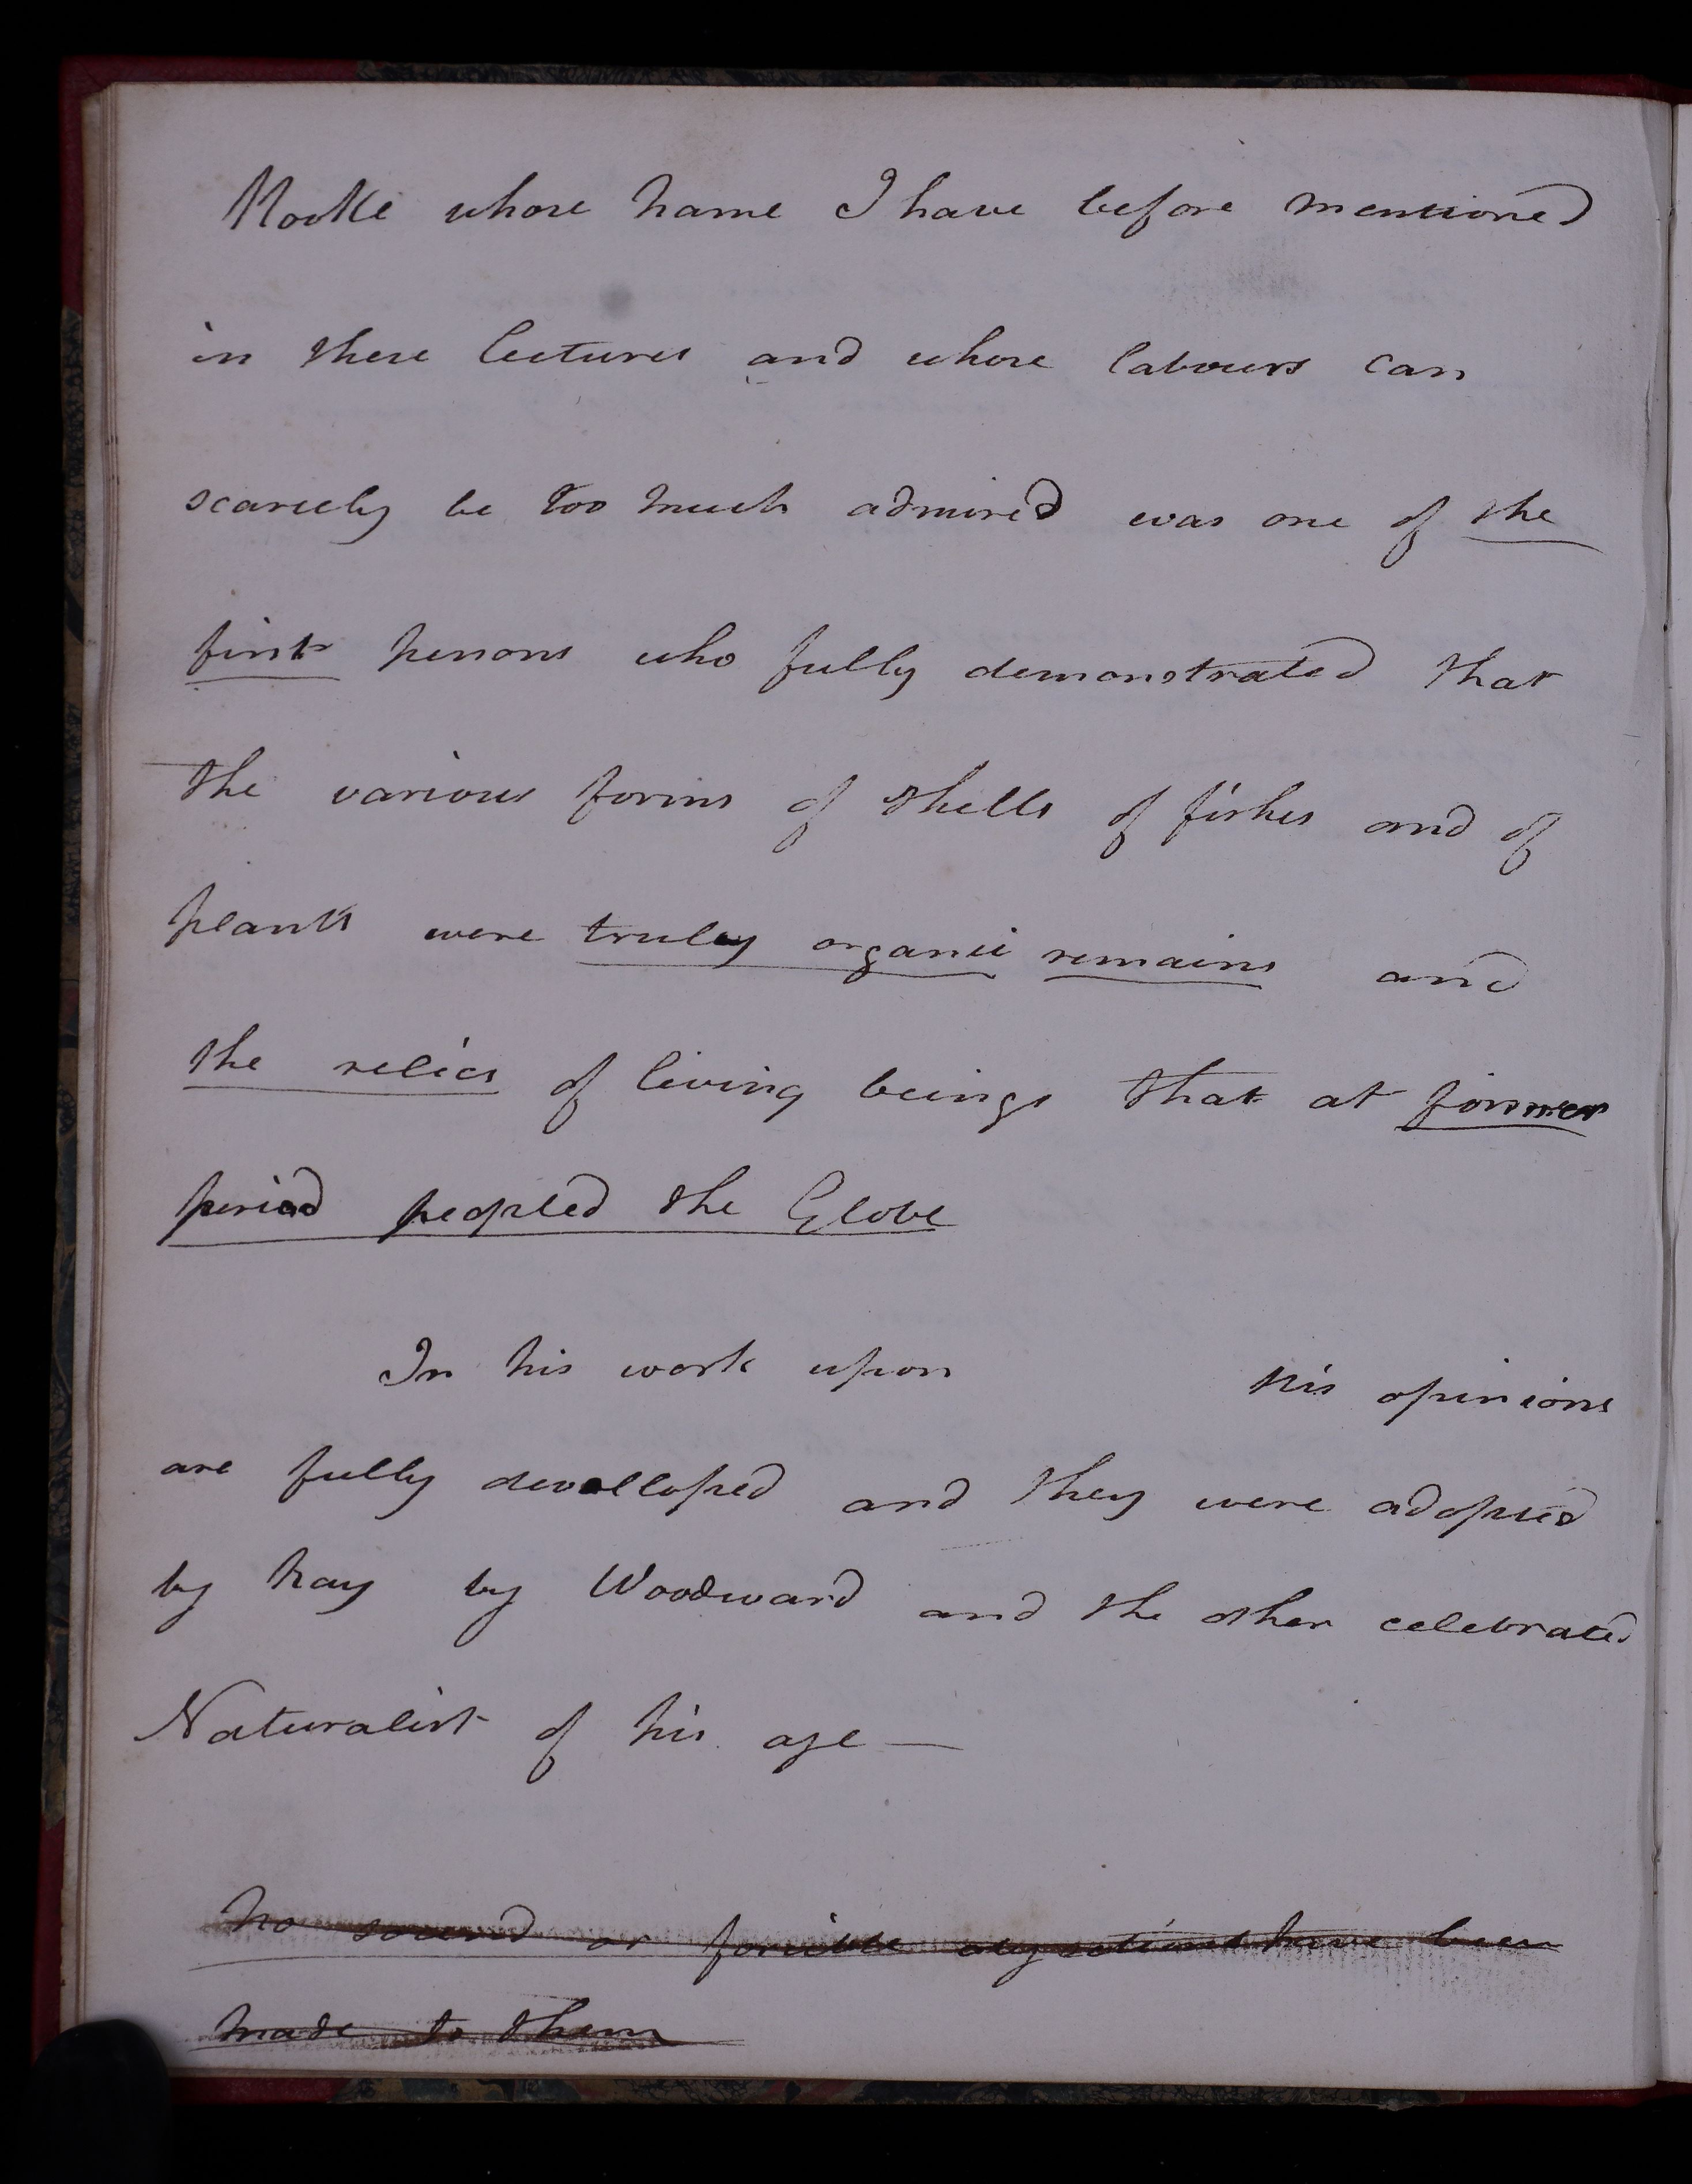 Hooke whose name I have before mentioned
in these lectures and whose labours can
scarcely be too much admired was one of the
first persons who fully demonstrated that
the various forms of shells of fishes and of
plants were truley organic remains and
the relics of living beings that at former
period peopled the Globe
In his work upon His opinions
are fully devolloped and they were adopted
by Ray by Woodward and the other celebrated
Naturalist of his age —
No sound or forcible objections have been
made to them